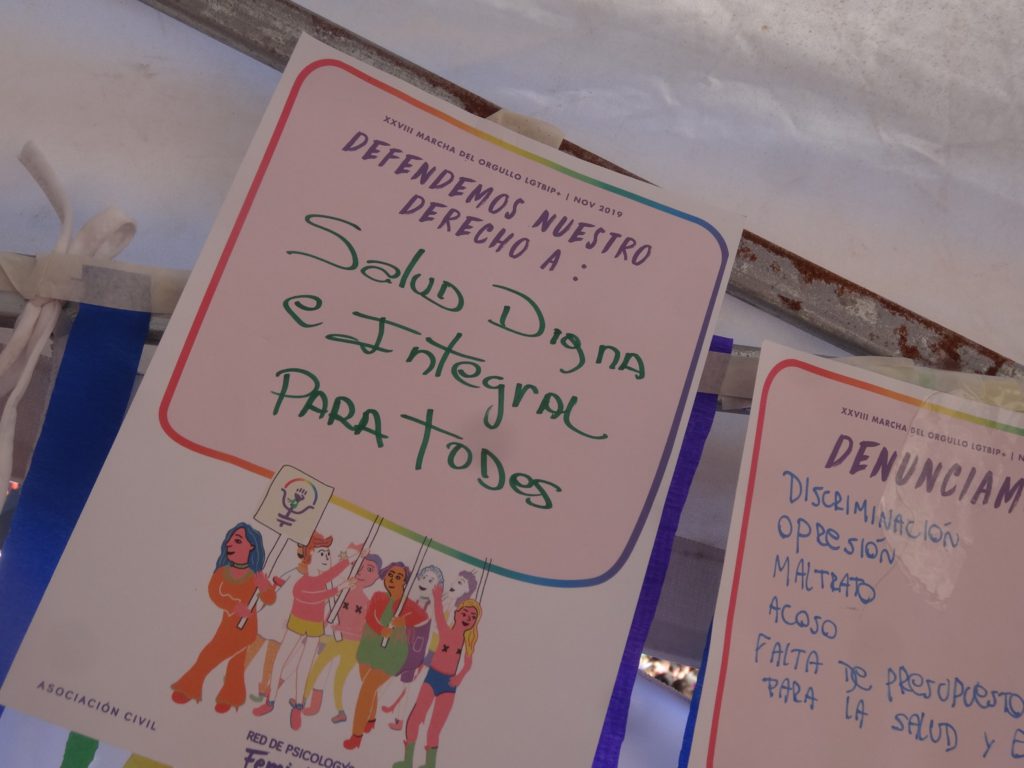 XXVIII MARCHA DEL ORGULLO LGTBIP+ | NOV 2019
DEFENDEMOS NUESTRO
DERECHO A :
Salud Digna
e Integral
PARA TODES
ASOCIACIÓN CIVIL
RED DE PSICOLOGXS
XXVIII MARCHA DEL ORGULLO LGTBIP+ | N
DENUNCIAM
DISCRIMINACIÓN
OPRESIÓN
MALTRATO
ACOSO
FALTA DE PRESUPUESTO
PARA LA SALUD Y E